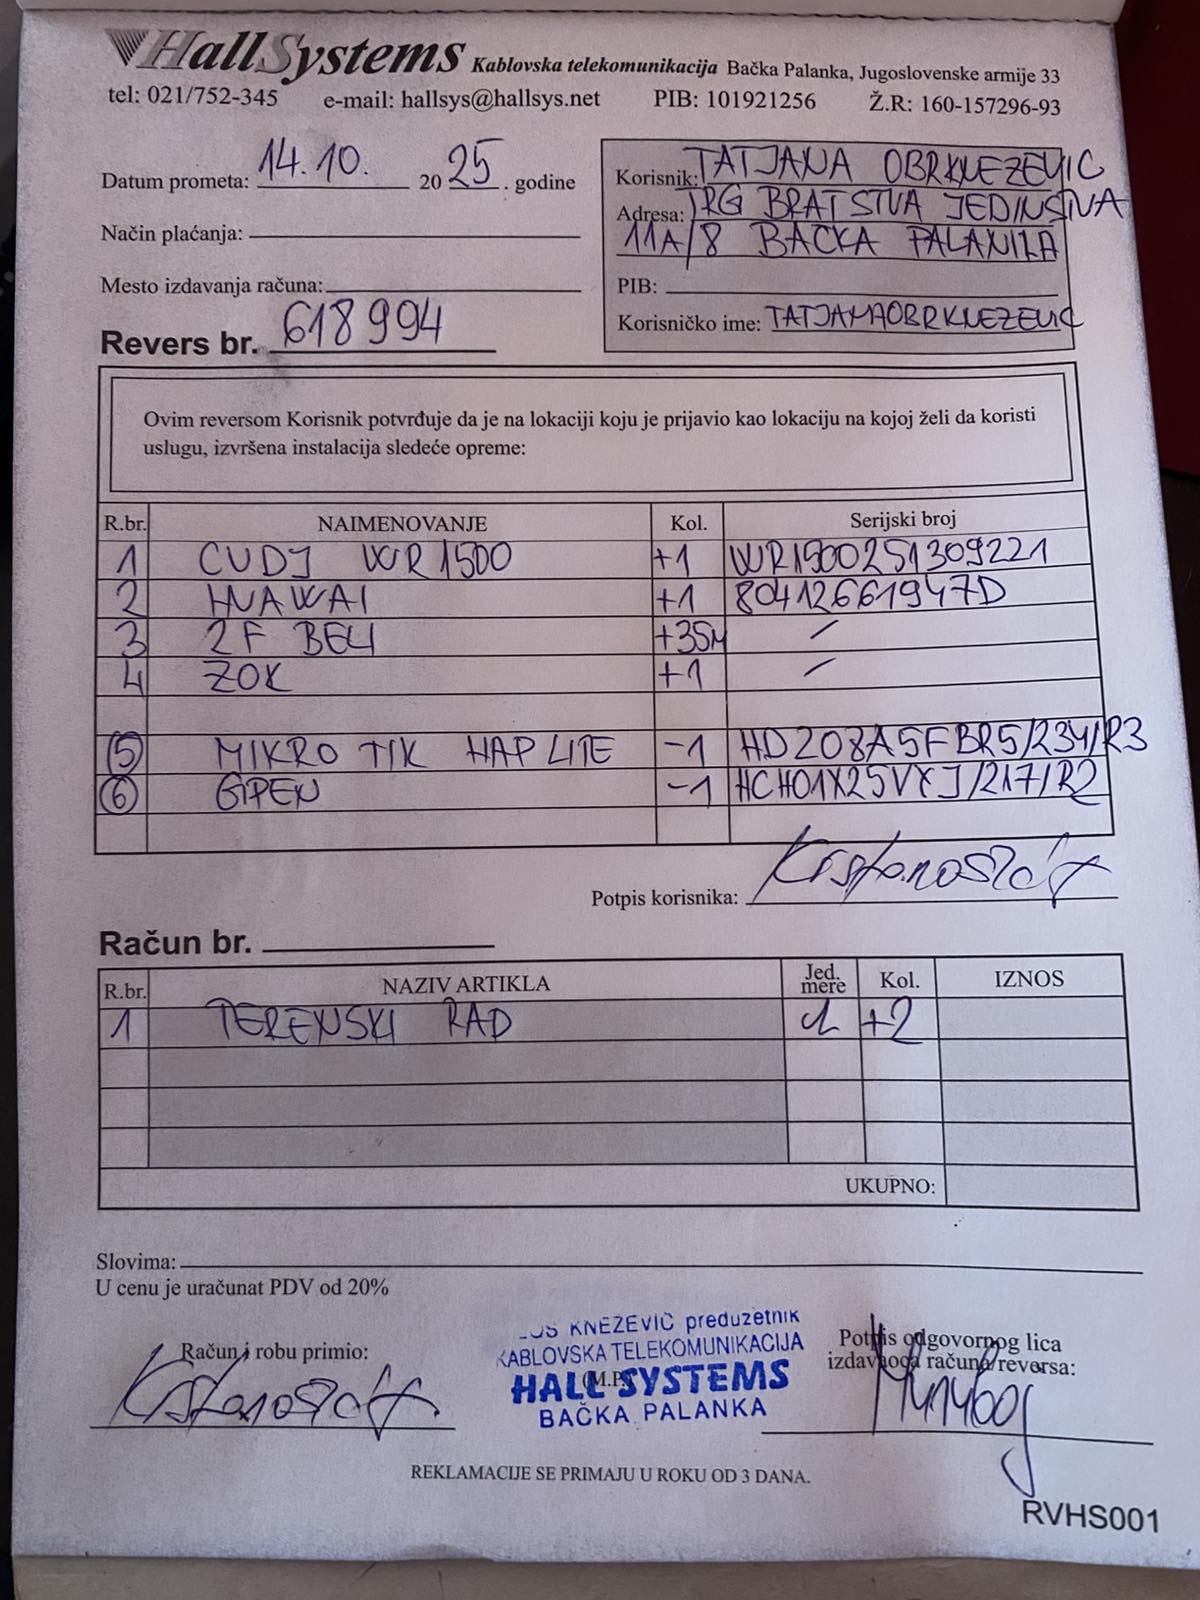 HallSystems Kablovska telekomunikacija Bačka Palanka, Jugoslovenske armije 33
tel: 021/752-345 e-mail: hallsys@hallsys.net PIB: 101921256 Ž.R: 160-157296-93
Datum prometa: 14.10. 2025. godine
Način plaćanja:
Mesto izdavanja računa:
Revers br. 618994
Korisnik: TATJANA OBRKNEZEVIC
Adresa: TRG BRATSTVA JEDINSTVA
11A/8 BAČKA PALANKA
PIB:
Korisničko ime: TATJANAOBRKNEZEVIC
Ovim reversom Korisnik potvrđuje da je na lokaciji koju je prijavio kao lokaciju na kojoj želi da koristi
uslugu, izvršena instalacija sledeće opreme:
R.br. NAIMENOVANJE Kol. Serijski broj
1 CUDJ WR1500 +1 WR1500251309221
2 HUAWAI +1 80412661947D
3 2F BELI +35M /
4 ZOK +1 /
5 MIKRO TIK HAP LITE -1 HD208A5FBR5/234/R3
6 GIPEN -1 HCH01X25VXJ/217/R2
Potpis korisnika:
Račun br.
R.br. NAZIV ARTIKLA Jed. mere Kol. IZNOS
1 TERENSKI RAD +2
UKUPNO:
Slovima:
U cenu je uračunat PDV od 20%
Račun i robu primio:
KNEŽEVIĆ preduzetnik
KABLOVSKA TELEKOMUNIKACIJA
(M.P.)
HALL SYSTEMS
BAČKA PALANKA
Potpis odgovornog lica
izdavaoca računa/reversa:
REKLAMACIJE SE PRIMAJU U ROKU OD 3 DANA.
RVHS001